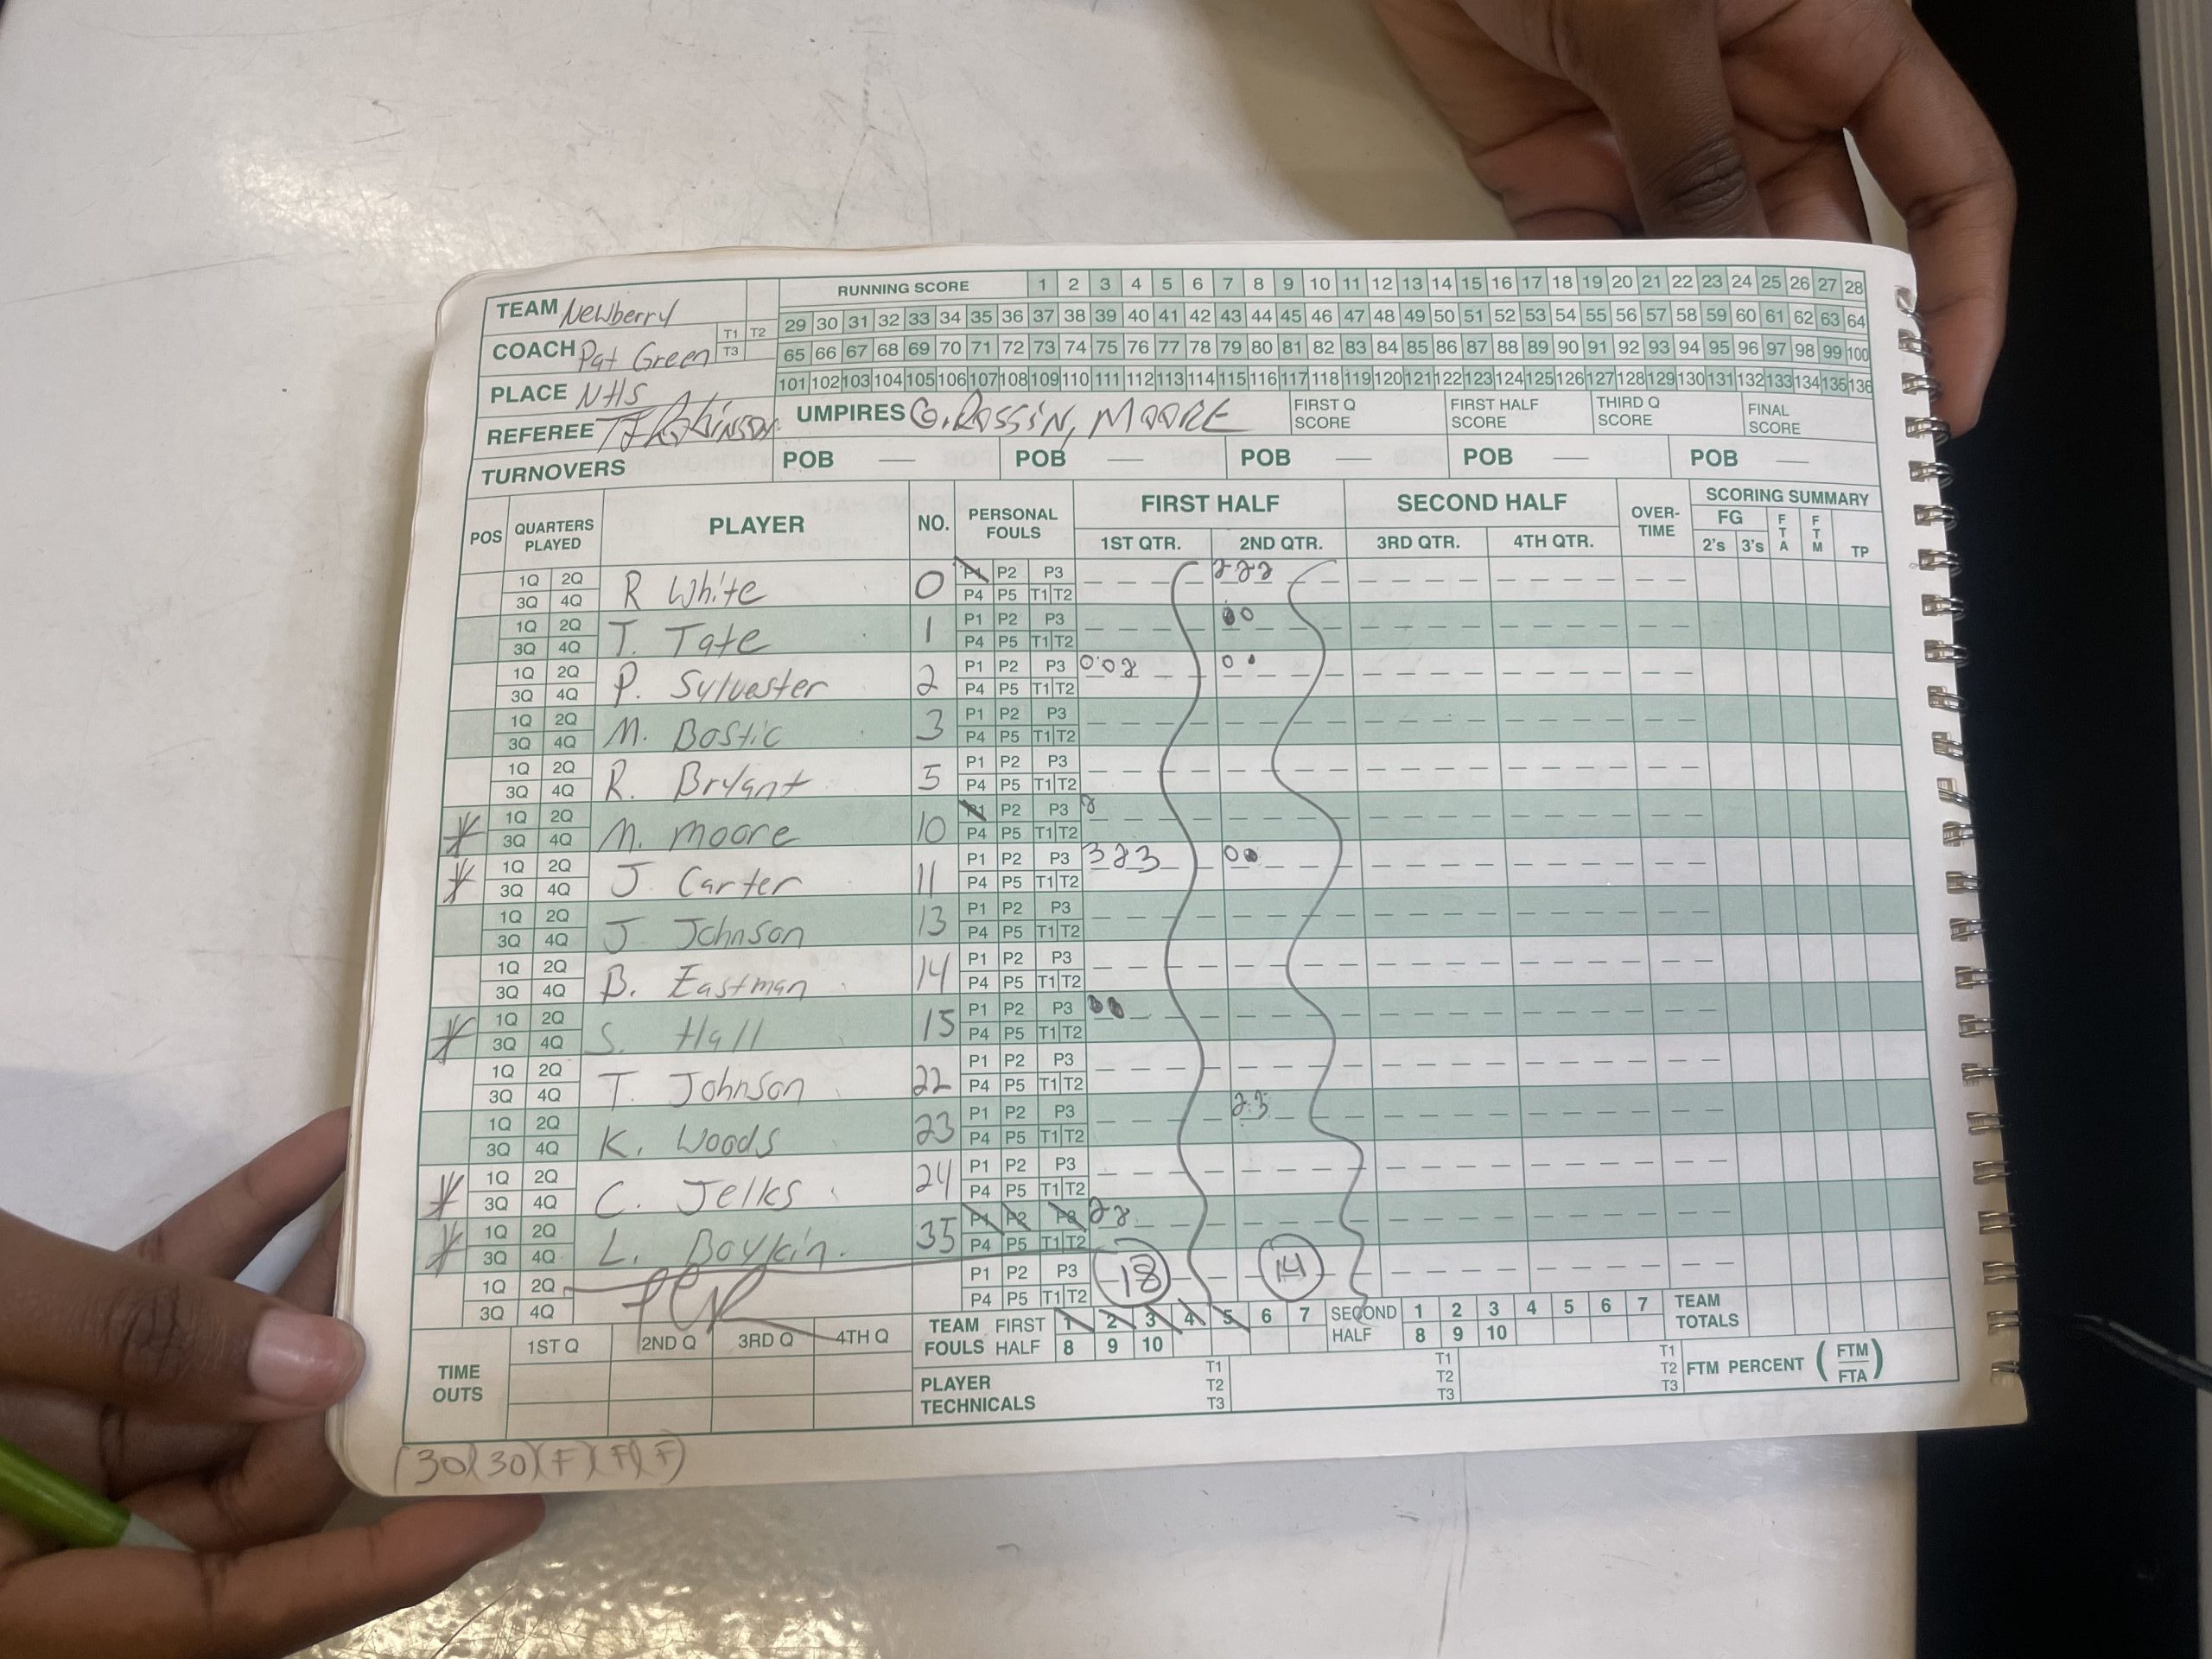 TEAM Newberry T1 T2
COACH Pat Green T3
PLACE NHS
REFEREE
RUNNING SCORE 1 2 3 4 5 6 7 8 9 10 11 12 13 14 15 16 17 18 19 20 21 22 23 24 25 26 27 28
29 30 31 32 33 34 35 36 37 38 39 40 41 42 43 44 45 46 47 48 49 50 51 52 53 54 55 56 57 58 59 60 61 62 63 64
65 66 67 68 69 70 71 72 73 74 75 76 77 78 79 80 81 82 83 84 85 86 87 88 89 90 91 92 93 94 95 96 97 98 99 100
101 102 103 104 105 106 107 108 109 110 111 112 113 114 115 116 117 118 119 120 121 122 123 124 125 126 127 128 129 130 131 132 133 134 135 136
UMPIRES G. Rossin, MOORE FIRST Q SCORE FIRST HALF SCORE THIRD Q SCORE FINAL SCORE
TURNOVERS POB — POB — POB — POB — POB —
POS QUARTERS PLAYED PLAYER NO. PERSONAL FOULS FIRST HALF SECOND HALF OVER-TIME SCORING SUMMARY
1ST QTR. 2ND QTR. 3RD QTR. 4TH QTR. FG 2's 3's FTA FTM TP
1Q 2Q R White 0 P1 P2 P3 2 2 2
3Q 4Q P4 P5 T1 T2
1Q 2Q T. Tate 1 P1 P2 P3
3Q 4Q P4 P5 T1 T2
1Q 2Q P. Sylvester 2 P1 P2 P3
3Q 4Q P4 P5 T1 T2
1Q 2Q M. Bostic 3 P1 P2 P3
3Q 4Q P4 P5 T1 T2
1Q 2Q R. Bryant 5 P1 P2 P3
3Q 4Q P4 P5 T1 T2
1Q 2Q M. Moore 10 P1 P2 P3 2
3Q 4Q P4 P5 T1 T2
1Q 2Q J. Carter 11 P1 P2 P3 3 2 3
3Q 4Q P4 P5 T1 T2
1Q 2Q J Johnson 13 P1 P2 P3
3Q 4Q P4 P5 T1 T2
1Q 2Q B. Eastman 14 P1 P2 P3
3Q 4Q P4 P5 T1 T2
1Q 2Q S. Hall 15 P1 P2 P3
3Q 4Q P4 P5 T1 T2
1Q 2Q T. Johnson 22 P1 P2 P3
3Q 4Q P4 P5 T1 T2
1Q 2Q K. Woods 23 P1 P2 P3 2 3
3Q 4Q P4 P5 T1 T2
1Q 2Q C. Jelks 24 P1 P2 P3
3Q 4Q P4 P5 T1 T2
1Q 2Q L. Boykin. 35 P1 P2 P3 2 2
3Q 4Q P4 P5 T1 T2
1Q 2Q P1 P2 P3 18 14
3Q 4Q P4 P5 T1 T2
TIME OUTS 1ST Q 2ND Q 3RD Q 4TH Q
TEAM FOULS FIRST HALF 1 2 3 4 5 6 7 8 9 10
SECOND HALF 1 2 3 4 5 6 7 8 9 10 TEAM TOTALS
PLAYER TECHNICALS T1 T2 T3 T1 T2 T3 T1 T2 T3 FTM PERCENT (FTM FTA)
(30)(30)(F)(F)(F)